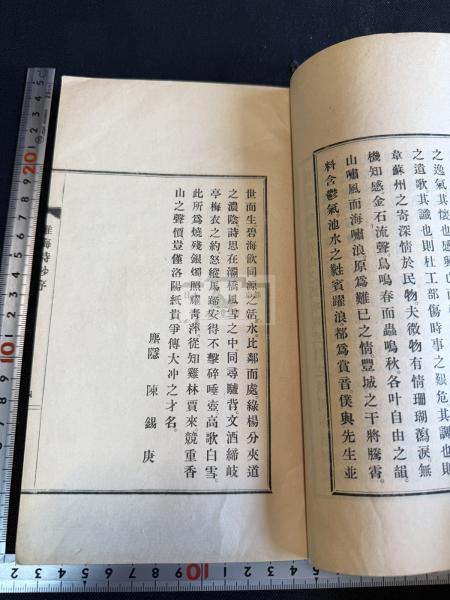 之逸氣其懷也則感興山
之遺歌其識也則杜工部傷時事之艱危其調也則
韋蘇州之寄深情於民物夫微物有情珊瑚瀉淚無
機知感金石流聲鳥鳴春而蟲鳴秋各叶自由之韻
山嘯風而海嘯浪原爲難已之情豐城之干將騰霄
料含鬱氣池水之鞋賓躍浪都爲賞音僕與先生並
世而生碧海飲同源之活水比鄰而處綠楊分夾道
之濃陰詩思在灞橋風雪之中同尋驢背文酒締岐
亭梅衣之約怒縱馬蹄安得不擊碎唾壺高歌白雪
此所爲燒殘銀燭照耀青萍從知雞林賈來競重香
山之聲價豈僅洛陽紙貴爭傳大冲之才名
塵隱 陳錫庚